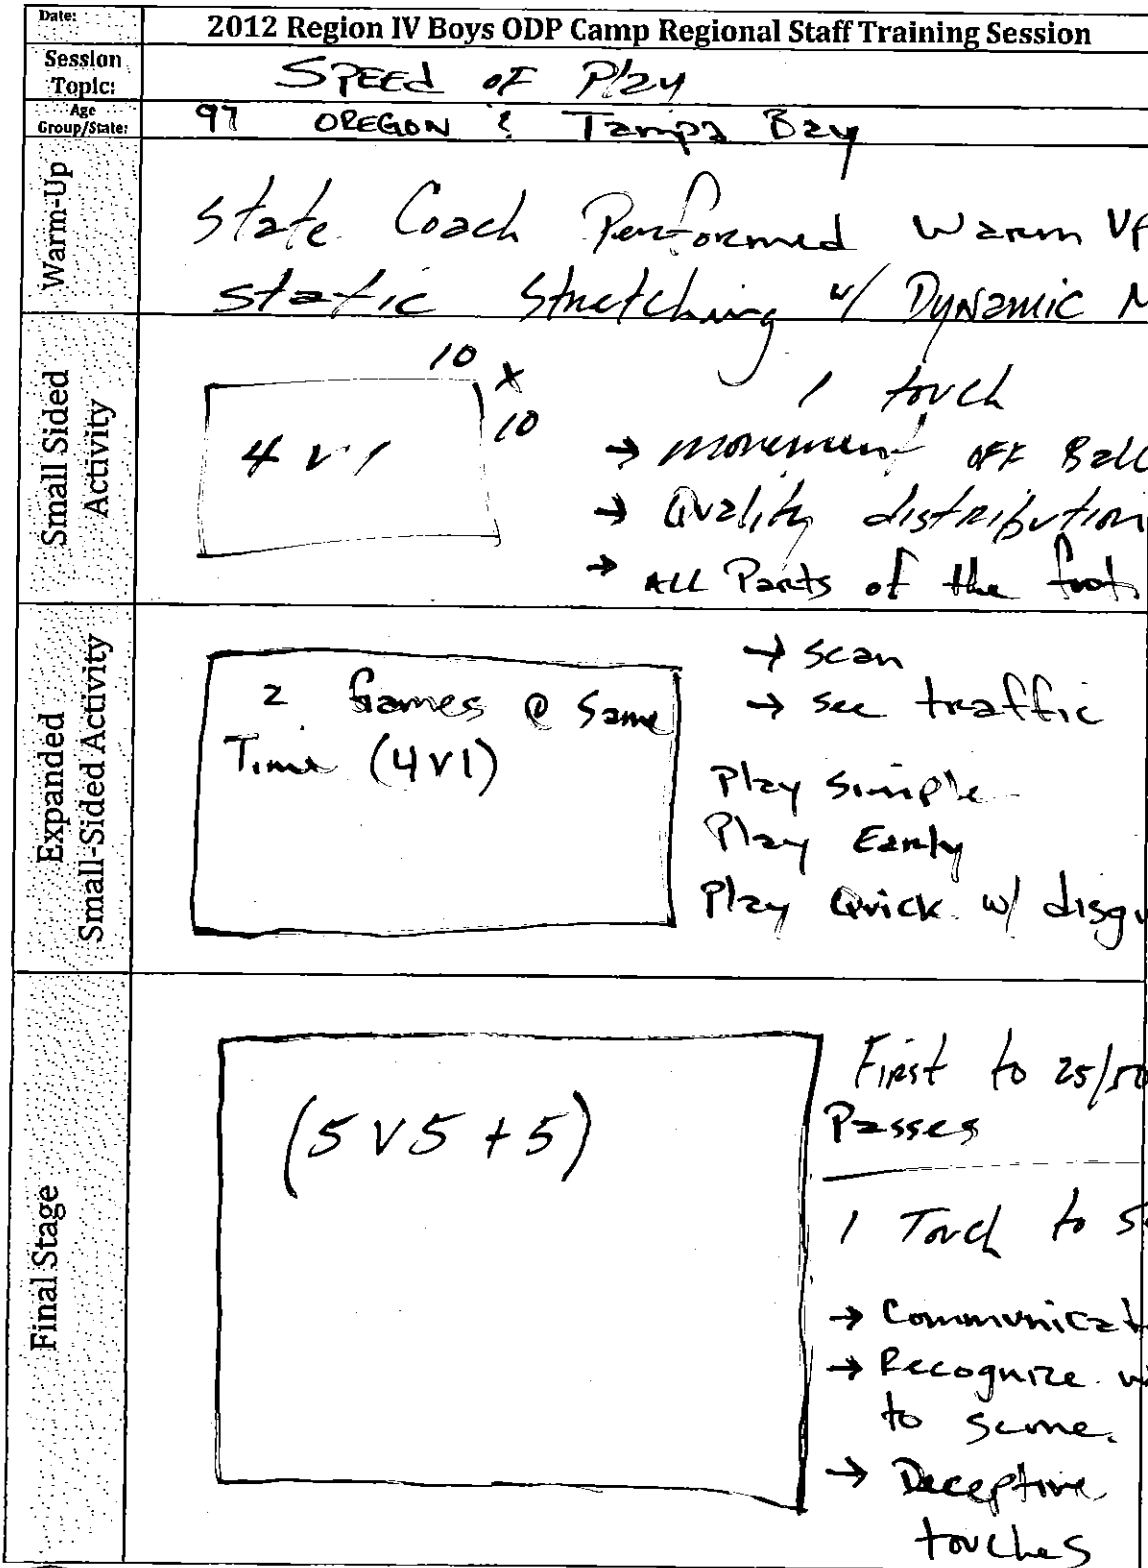 Date:
2012 Region IV Boys ODP Camp Regional Staff Training Session
Session
Topic:
SPEEd OF Play
Age
Group/State:
97 OREGON & Tampa Bay
Warm-Up
State Coach Performed Warm UP
Static Stretching w/ Dynamic M
Small Sided
Activity
4 v 1
10
x
10
1 touch
→ movement OFF Ball
→ Quality distribution
→ ALL Parts of the foot
Expanded
Small-Sided Activity
2 Games @ Same
Time (4V1)
→ scan
→ see traffic
Play Simple
Play Early
Play Quick w/ disgu
Final Stage
(5 V 5 + 5)
First to 25/50
Passes
1 Touch to
→ Communicat
→ Recognize
to
→ Deceptive
touches